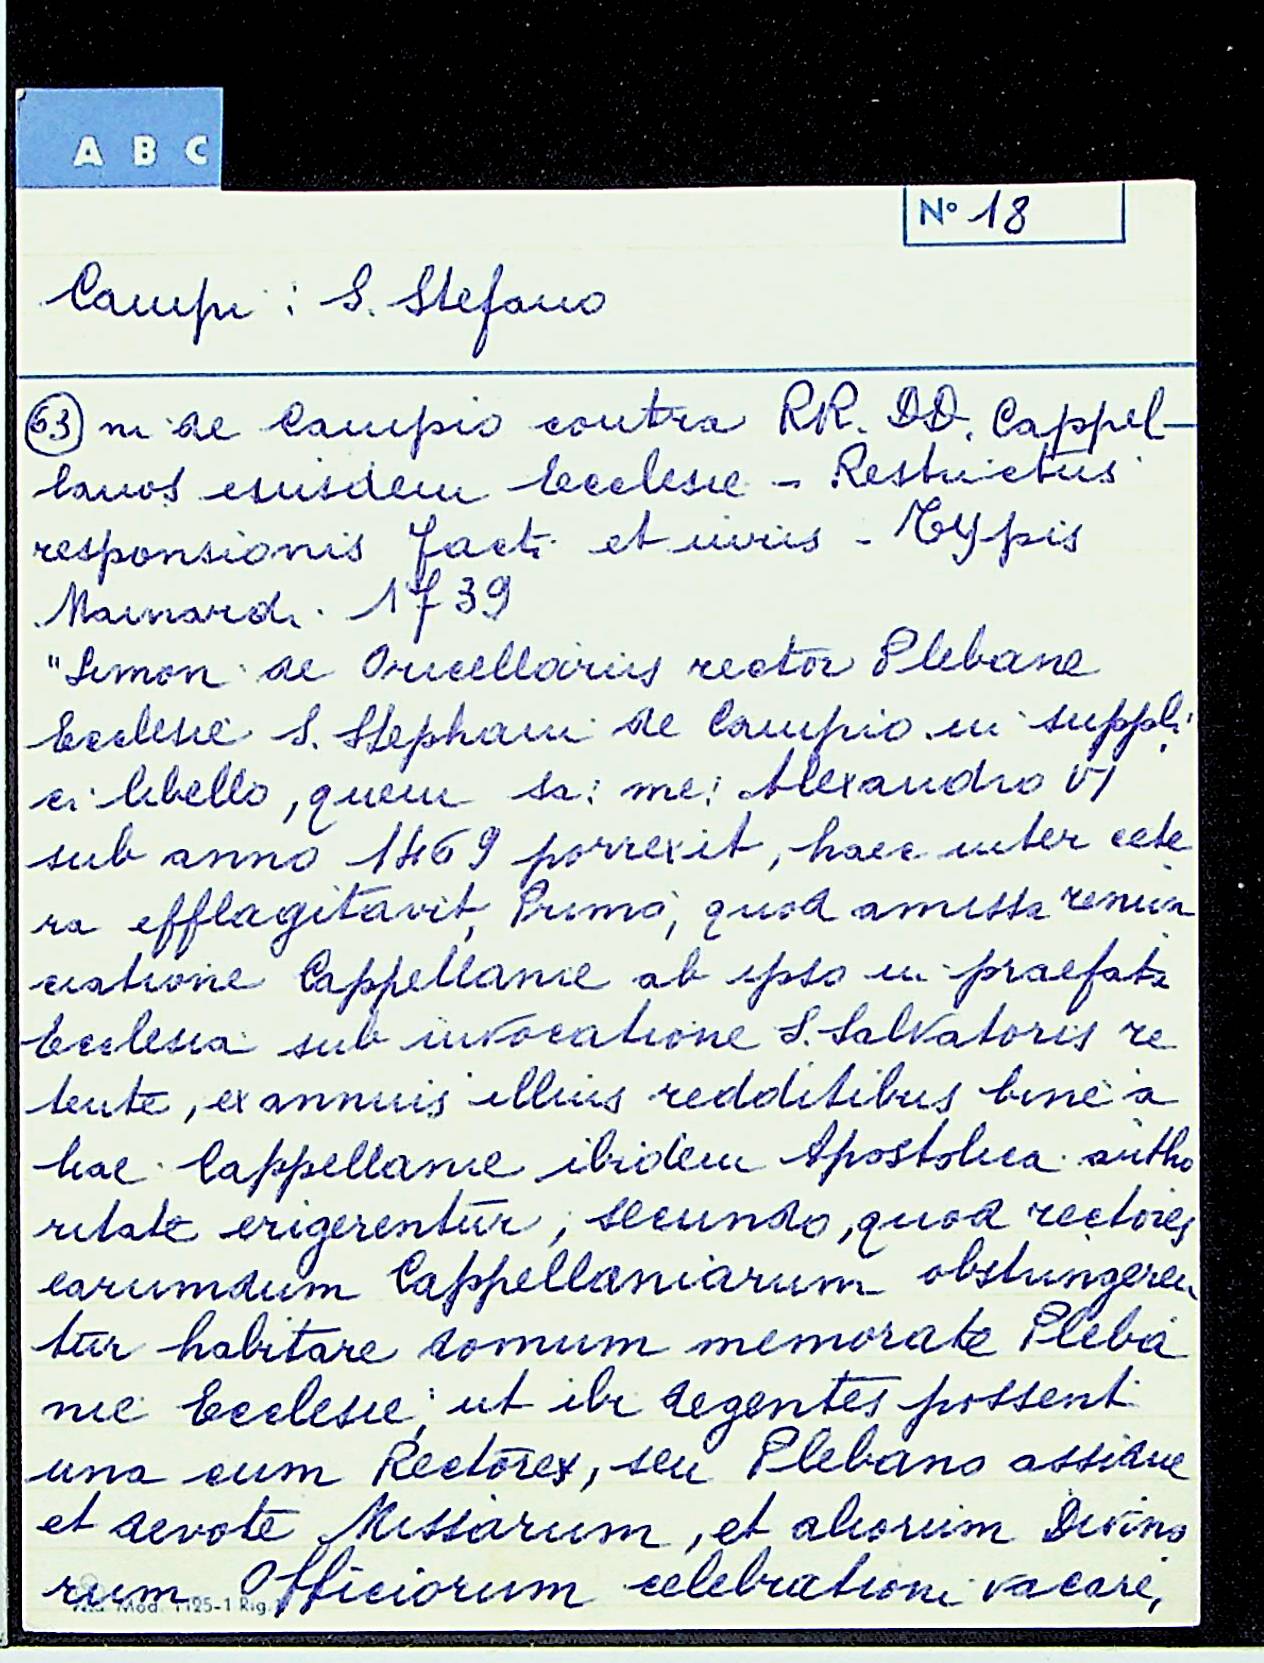 A B C
N° 18
Campi : S. Stefano
63 ni de Campio contra RR. DD. Cappel-
lanos eiusdem Ecclesie - Restrictus
responsionis facti et iuris - Typis
Mainardi. 1739
"Simon de Oricellariis rector Plebane
Ecclesie S. Stephani de Campio in suppli
ci libello, quem sa: me: Alexandro VI
sub anno 1469 porrexit, haec inter cete
ra efflagitavit, Primo, quod amissa renun
ciatione Cappellanie ab ipso in praefata
Ecclesia sub invocatione S. Salvatoris re
tente, ex annuis illius redditibus bine a
liae Cappellanie ibidem Apostolica autho
ritate erigerentur, secundo, quod rectores
earumdum Cappellaniarum obstringeren
tur habitare domum memorate Pleba
nie Ecclesie, ut ibi degentes possent
una cum Rectores, seu Plebano assidue
et devote Missarum, et aliorum Divino
rum Officiorum celebrationi vacare,
Mod. 1125-1 Rig.